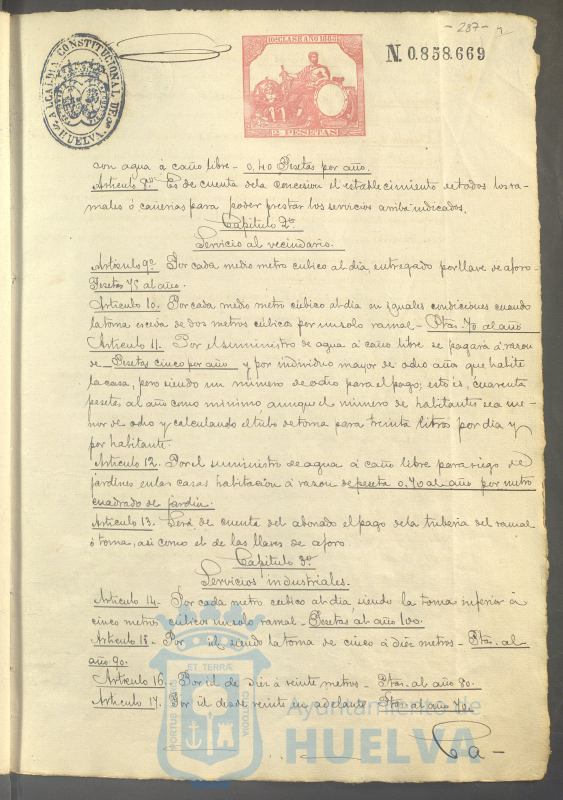 - 287 -
ALCALDIA CONSTITUCIONAL DE HUELVA
10ª CLASE AÑO
11
2 PESETAS
N. 0.858.669
con agua á caño libre - 0,40 Pesetas por año.
Articulo 8º. Es de cuenta de la concesion el establecimiento
males ó cañerias para poder prestar los servicios arriba indicados.
Capitulo 2º
Servicio al vecindario.
Articulo 9º Por cada medio metro cubico al dia, entregado por llave de aforo-
Pesetas 75 al año.
Articulo 10. Por cada medio metro cúbico al dia en iguales condiciones cuando
la toma esceda de dos metros cúbicos por un solo ramal - Ptas. 70 al año
Articulo 11. Por el suministro de agua á caño libre se pagará á razon
de Pesetas cinco por año y por individuo mayor de ocho años que habite
la casa, pero siendo un número de ocho para el pago; esto es, cuarenta
pesetas al año como minimo aunque el número de habitantes sea me-
nor de ocho y calculando el tubo de toma para treinta litros por dia y
por habitante.
Articulo 12. Por el suministro de agua á caño libre para riego de
jardines en las casas habitación á razon de peseta 0.70 al año por metro
cuadrado de jardin.
Articulo 13. Será de cuenta del abonado el pago de la tuberia del ramal
ó toma, asi como el de las llaves de aforo.
Capitulo 3º.
Servicios industriales.
Articulo 14. Por cada metro cubico al dia, siendo la toma inferior á
cinco metros cúbicos un solo ramal - Pesetas al año 100.
Articulo 15. Por id. siendo la toma de cinco á diez metros - Ptas. al
año 90.
Articulo 16. Por id de diez á veinte metros - Ptas. al año 80.
Articulo 17. Por id desde veinte en adelante Ptas. al año 70.
Ca-
ET TERRÆ
PORTUS
CUSTODIA
Ayuntamiento de
HUELVA